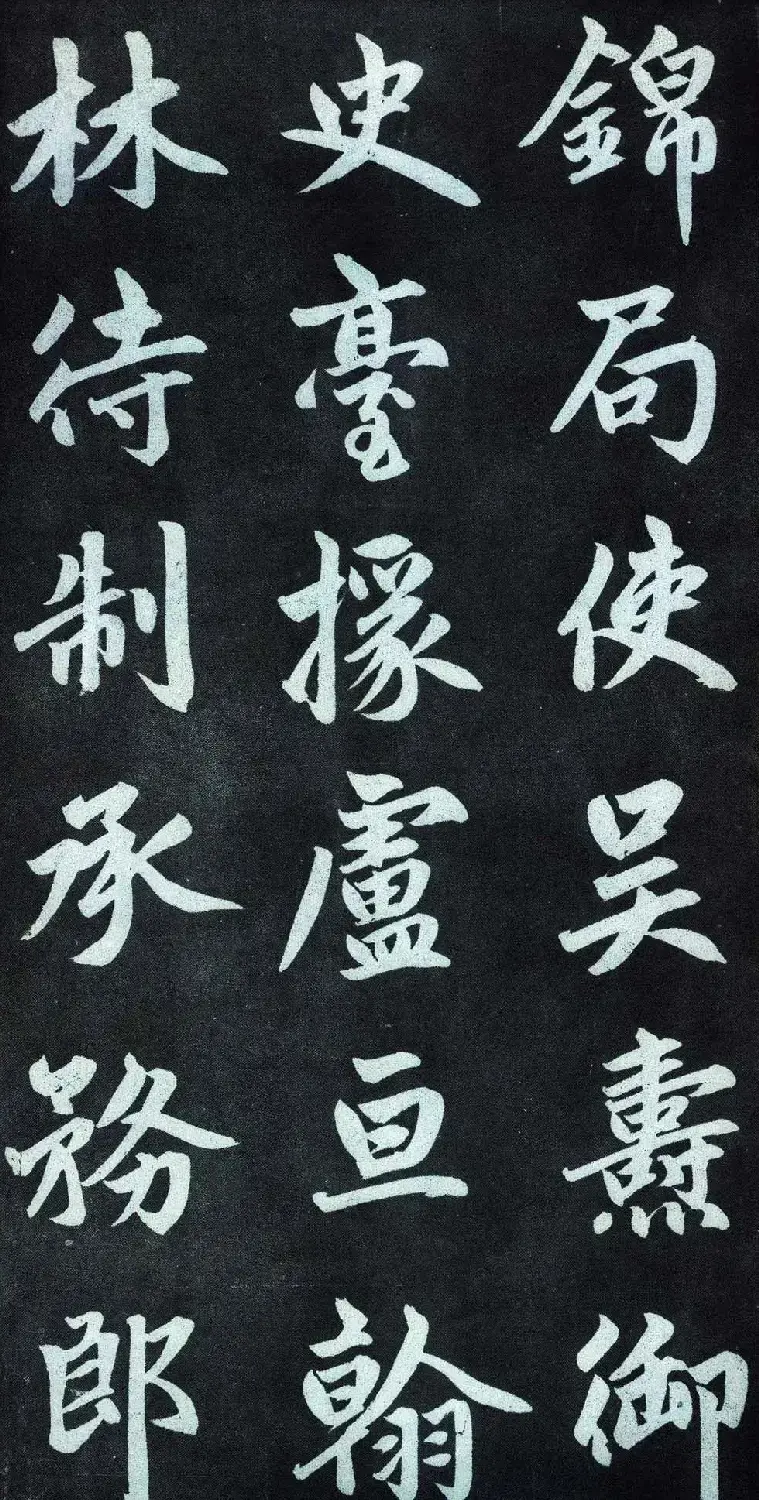 錦局使吴燾御
史臺掾盧亘翰
林待制承務郎